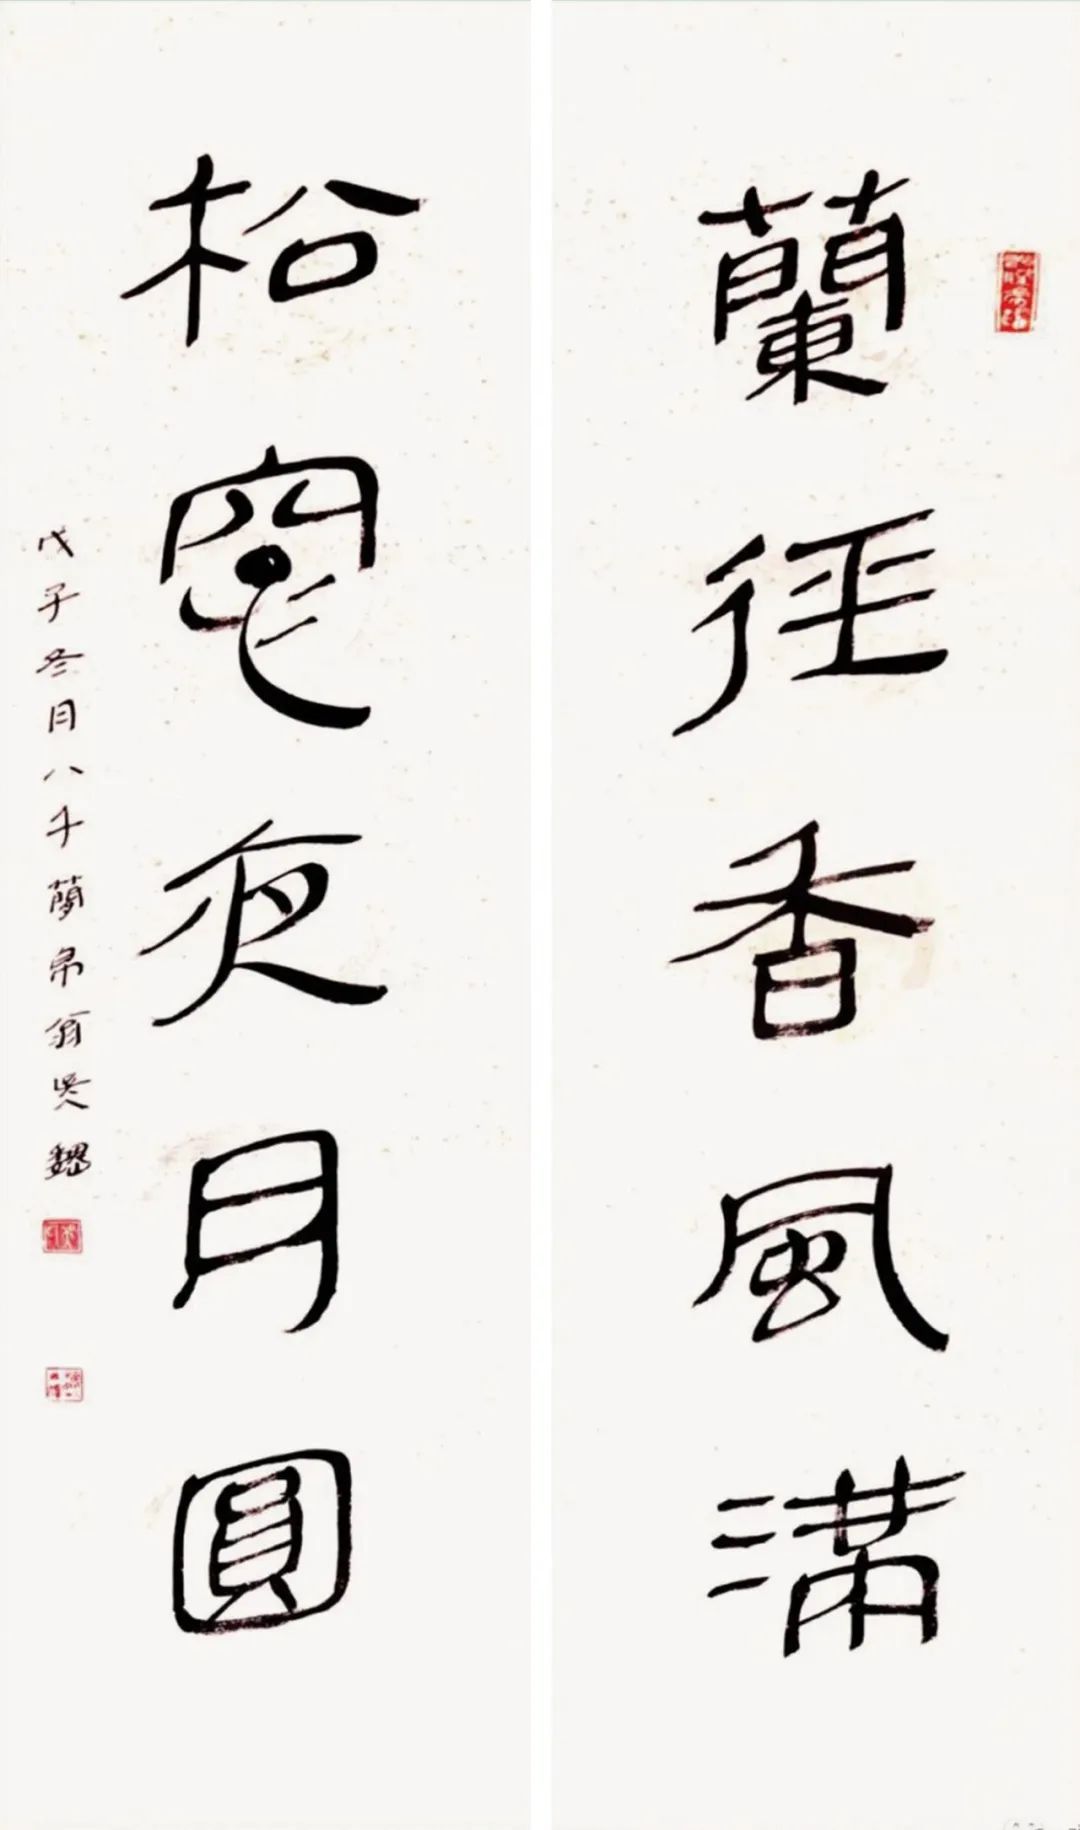 蘭徑香風滿
松窗夜月圓
戊子冬月八千簡帛翁吳巍